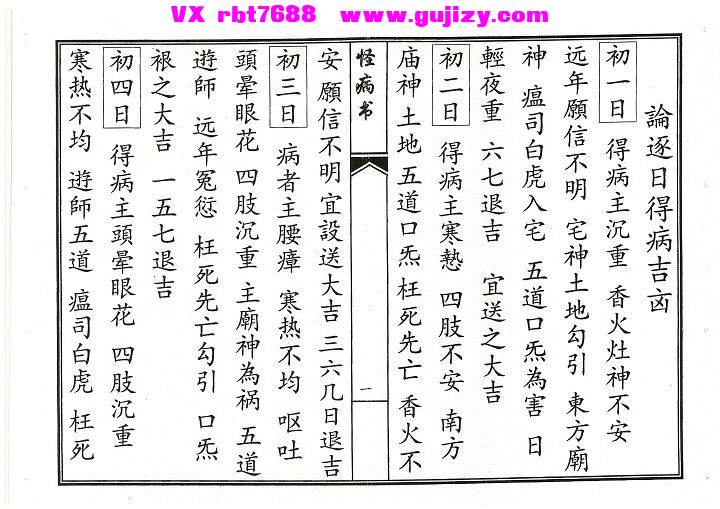 VX rbt7688 www.gujizy.com
論逐日得病吉凶
初一日 得病主沉重 香火灶神不安
远年願信不明 宅神土地勾引 東方廟
神 瘟司白虎入宅 五道口炁為害 日
輕夜重 六七退吉 宜送之大吉
初二日 得病主寒热 四肢不安 南方
庙神 土地 五道口炁 枉死先亡 香火不
怪病书
一
安 願信不明 宜設送大吉 三六几日退吉
初三日 病者主腰瘴 寒热不均 呕吐
頭暈眼花 四肢沉重 主廟神為祸 五道
遊師 远年冤愆 枉死先亡勾引 口炁
裉之大吉 一五七退吉
初四日 得病主頭暈眼花 四肢沉重
寒热不均 遊師五道 瘟司白虎 枉死